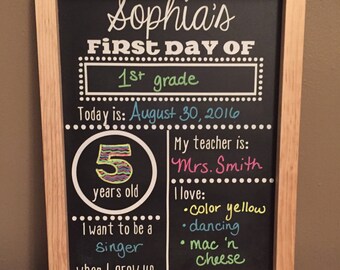 Sophia's
FIRST DAY OF
1st grade
Today is: August 30, 2016
5
years old
My teacher is:
Mrs. Smith
I want to be a
singer
when I grow up
I love:
• color yellow
• dancing
• mac 'n
cheese